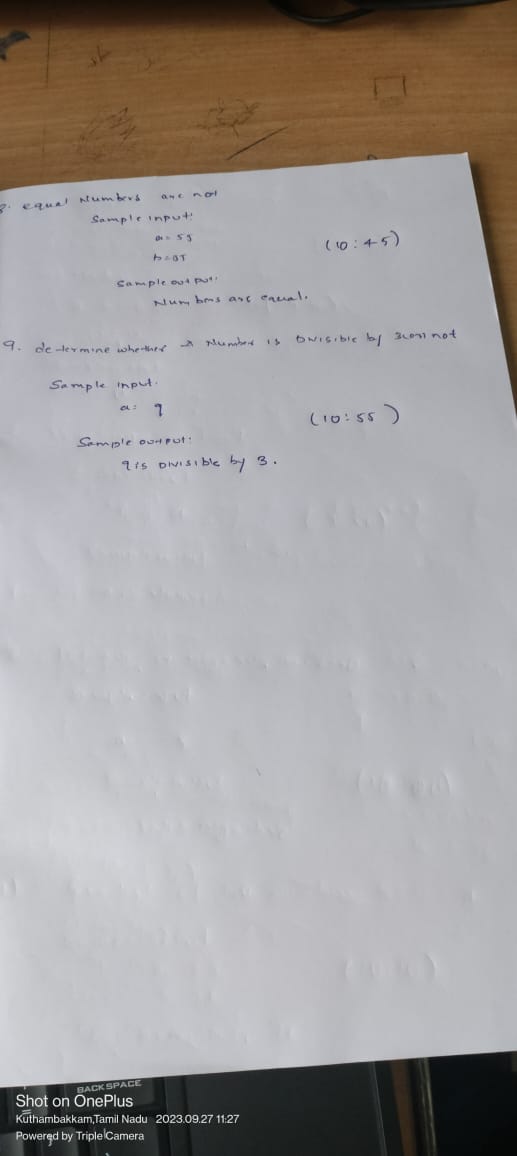 8. equal Numbers are not
Sample input:
a = 55
b = 55
(10:45)
Sample output:
Numbers are equal.
9. determine whether a Number is Divisible by 3 or not
Sample input.
a: 9
(10:55)
Sample output:
9 is DIVISIble by 3.
BACKSPACE
Shot on OnePlus
Kuthambakkam,Tamil Nadu 2023.09.27 11:27
Powered by Triple Camera